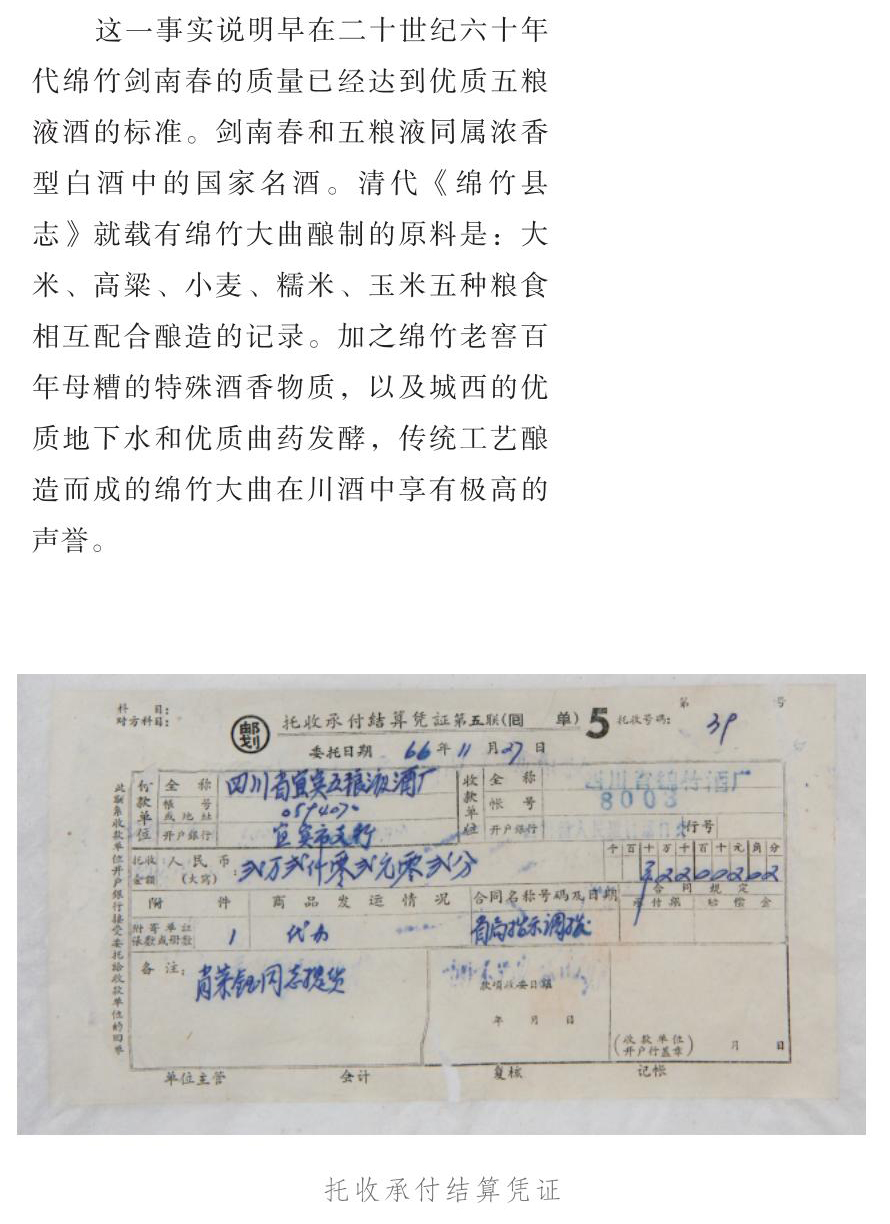 这一事实说明早在二十世纪六十年
代绵竹剑南春的质量已经达到优质五粮
液酒的标准。剑南春和五粮液同属浓香
型白酒中的国家名酒。清代《绵竹县
志》就载有绵竹大曲酿制的原料是：大
米、高粱、小麦、糯米、玉米五种粮食
相互配合酿造的记录。加之绵竹老窖百
年母糟的特殊酒香物质，以及城西的优
质地下水和优质曲药发酵，传统工艺酿
造而成的绵竹大曲在川酒中享有极高的
声誉。
科 目：
对方科目：
邮划
托收承付结算凭证第五联(回 单) 5 托收号码： 39
第 号
委托日期 66 年 11 月 27 日
付款单位 全 称 四川省宜宾五粮液酒厂
帐 号 或 地 址 0594070
开户银行 宜宾市支行
收款单位 全 称 四川省绵竹酒厂
帐 号 8003
开户银行 行号
托收金额 人 民 币 (大写)： 贰万贰仟零贰元零贰分
千 百 十 万 千 百 十 元 角 分
￥2200202
附 件 商 品 发 运 情 况 合同名称号码及日期 合 同 规 定
承付期 赔 偿 金
附寄单证张数或册数 1 代办 省局指示调拨
备 注： 肖荣钰同志提货
款项收妥日期
年 月 日
(收款单位开户行盖章) 月 日
单位主管 会计 复核 记帐
此联是收款单位开户银行接受委托给收款单位的回单
托收承付结算凭证